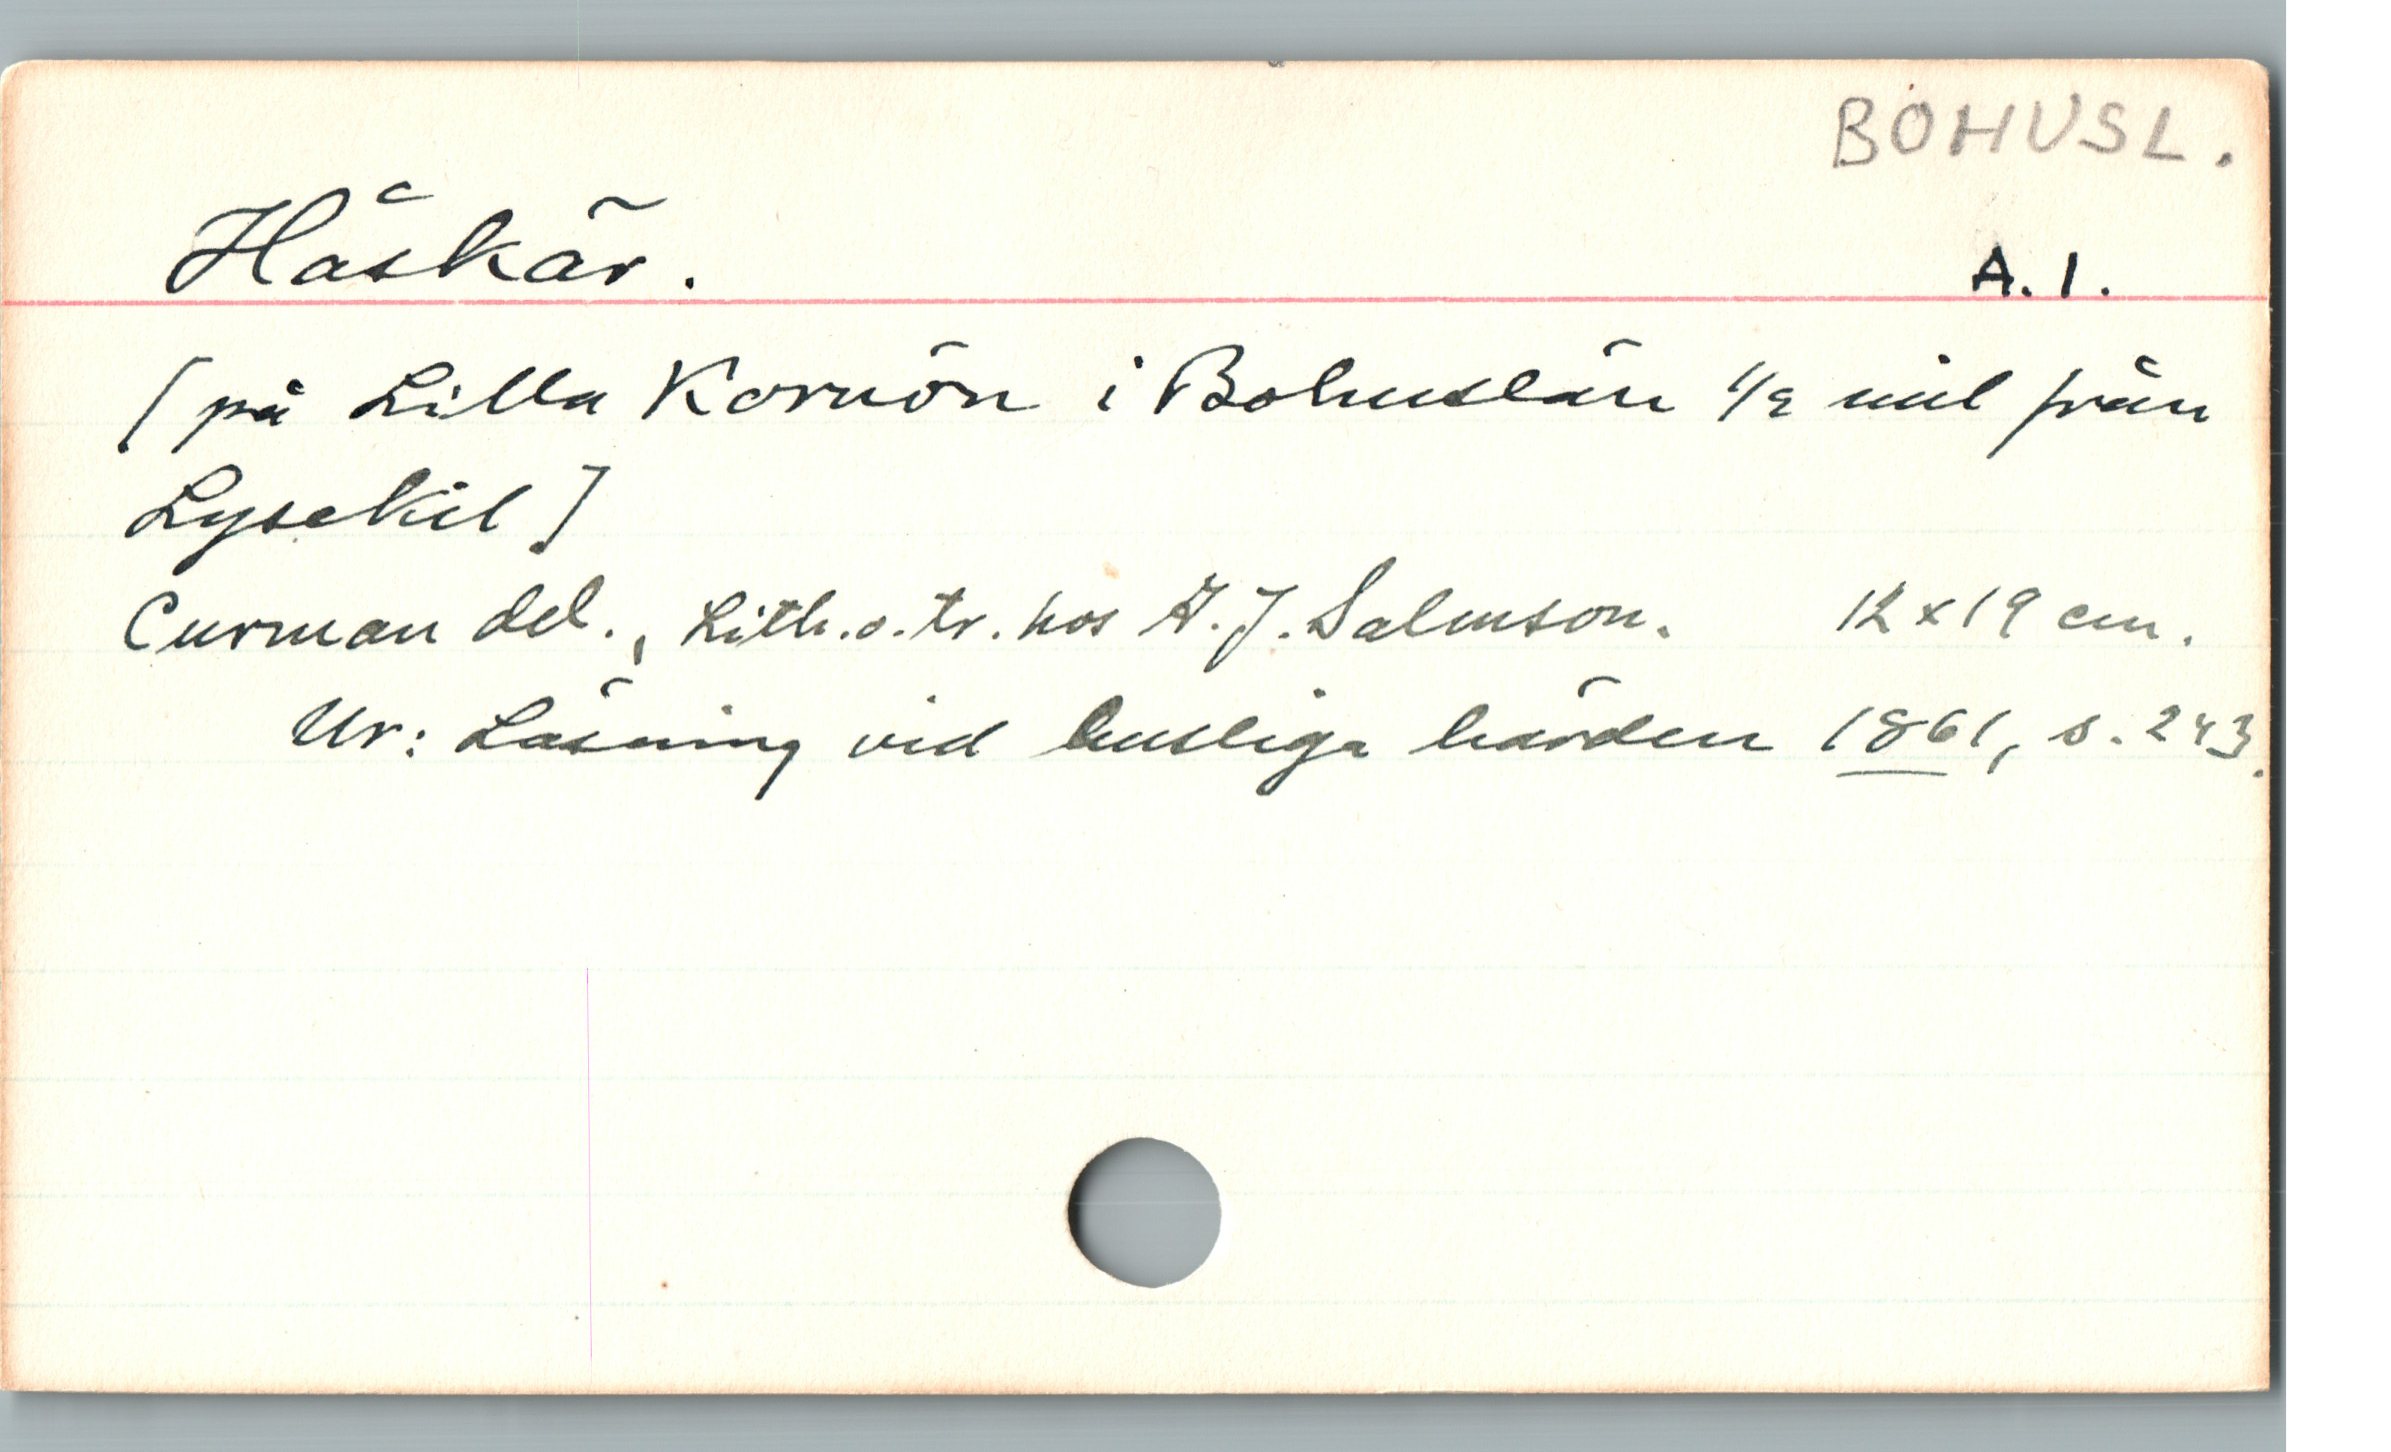 BOHUSL.
Håskär.
A. 1.
[på Lilla Kornön i Bohuslän 1/2 mil från
Lysekil]
Curman del., Lith. o. tr. hos A. J. Salmson. 12 x 19 cm.
Ur: Läsning vid husliga härden 1861, s. 243.